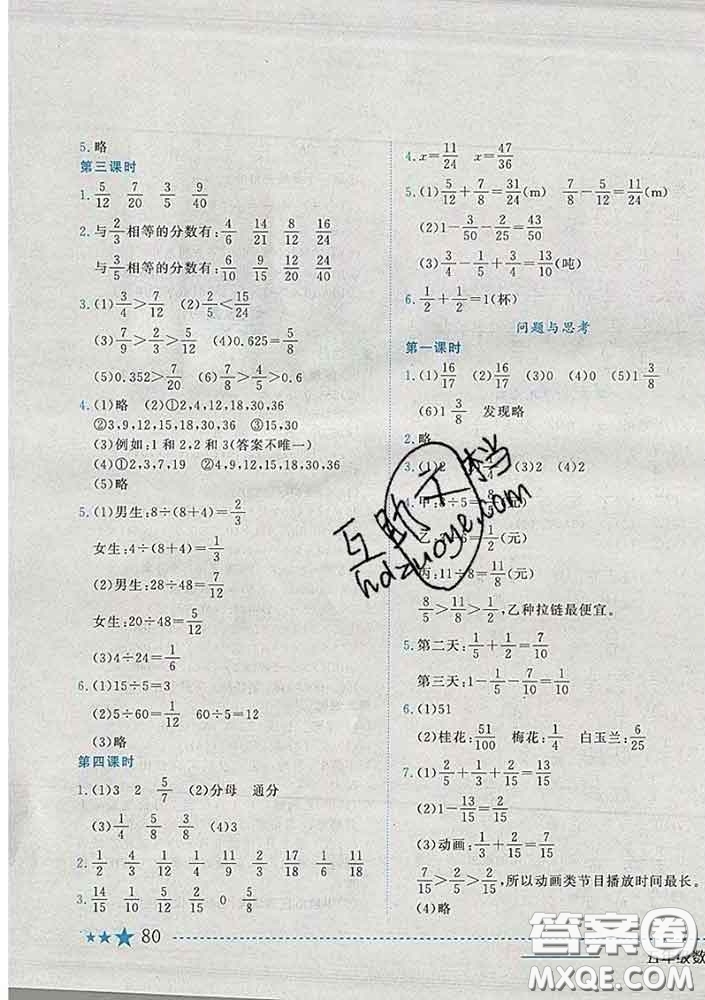 5.略
第三课时
1. 5/12 7/20 3/5 9/40
2.与2/3相等的分数有:4/6 14/21 8/12 16/24
与3/5相等的分数有:6/10 9/15 30/50 15/25
3.(1)3/4>7/12 (2)2/5<15/24
(3)7/9>2/3>1/2 (4)0.625=5/8
(5)0.352>7/20 (6)5/6>5/8>0.6
4.(1)略 (2)①2,4,12,18,30,36
②3,9,12,15,18,30,36 ③15,30
(3)例如:1和2,2和3(答案不唯一)
(4)①2,3,7,19 ②4,9,12,15,18,30,36
(5)略
5.(1)男生:8÷(8+4)=2/3
女生:4÷(8+4)=1/3
(2)男生:28÷48=7/12
女生:20÷48=5/12
(3)4÷24=1/6
6.(1)15÷5=3
(2)5÷60=1/12 60÷5=12
(3)略
第四课时
1.(1)3 2 5/7 (2)分母 通分
(3)1/4 5/8 3/8 (4)3
2. 1/2 4/3 1/12 11/9 2/3 17/18 1/6 11/18
3. 14/15 1/10 5/12 2/15 0 5/8
80
4.x=11/24 x=47/36
5.(1)5/12+7/8=31/24(m) 7/8-5/12=11/24(m)
(2)1-3/50-2/25=43/50
(3)3/4-1/5+3/4=13/10(吨)
6. 1/2+1/2=1(杯)
问题与思考
第一课时
1.(1)16/17 (2)16/17 (3)0 (4)0 (5)1 3/8
(6)1 3/8 发现略
2.略
3.(1)2 (3)2 (4)2
4.甲:8÷5=8/5(元)
乙 6=1/2(元)
丙:11÷8=11/8(元)
8/5>11/8>1/2,乙种拉链最便宜。
5.第二天:1/5+1/2=7/10
第三天:1-1/5-7/10=1/10
6.(1)51
(2)桂花:51/100 梅花:1/4 白玉兰:6/25
7.(1)2/5+1/3+2/15=13/15
(2)1-13/15=2/15
(3)动画:1/3+2/15=7/15
7/15>2/5>2/15,所以动画类节目播放时间最长。
(4)略
互助文档
hdzuoye.com
答案圈
MXQE.COM